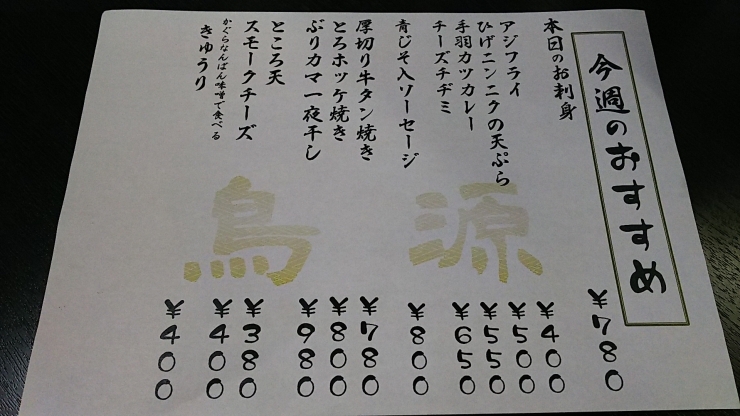 今週のおすすめ
本日のお刺身 ￥780
アジフライ ￥400
ひげニンニクの天ぷら ￥500
手羽カツカレー ￥550
チーズチヂミ ￥650
青じそ入ソーセージ ￥800
厚切り牛タン焼き ￥780
とろホッケ焼き ￥800
ぶりカマ一夜干し ￥980
ところ天 ￥380
スモークチーズ ￥400
かぐらなんばん味噌で食べる
きゅうり ￥400
鳥源